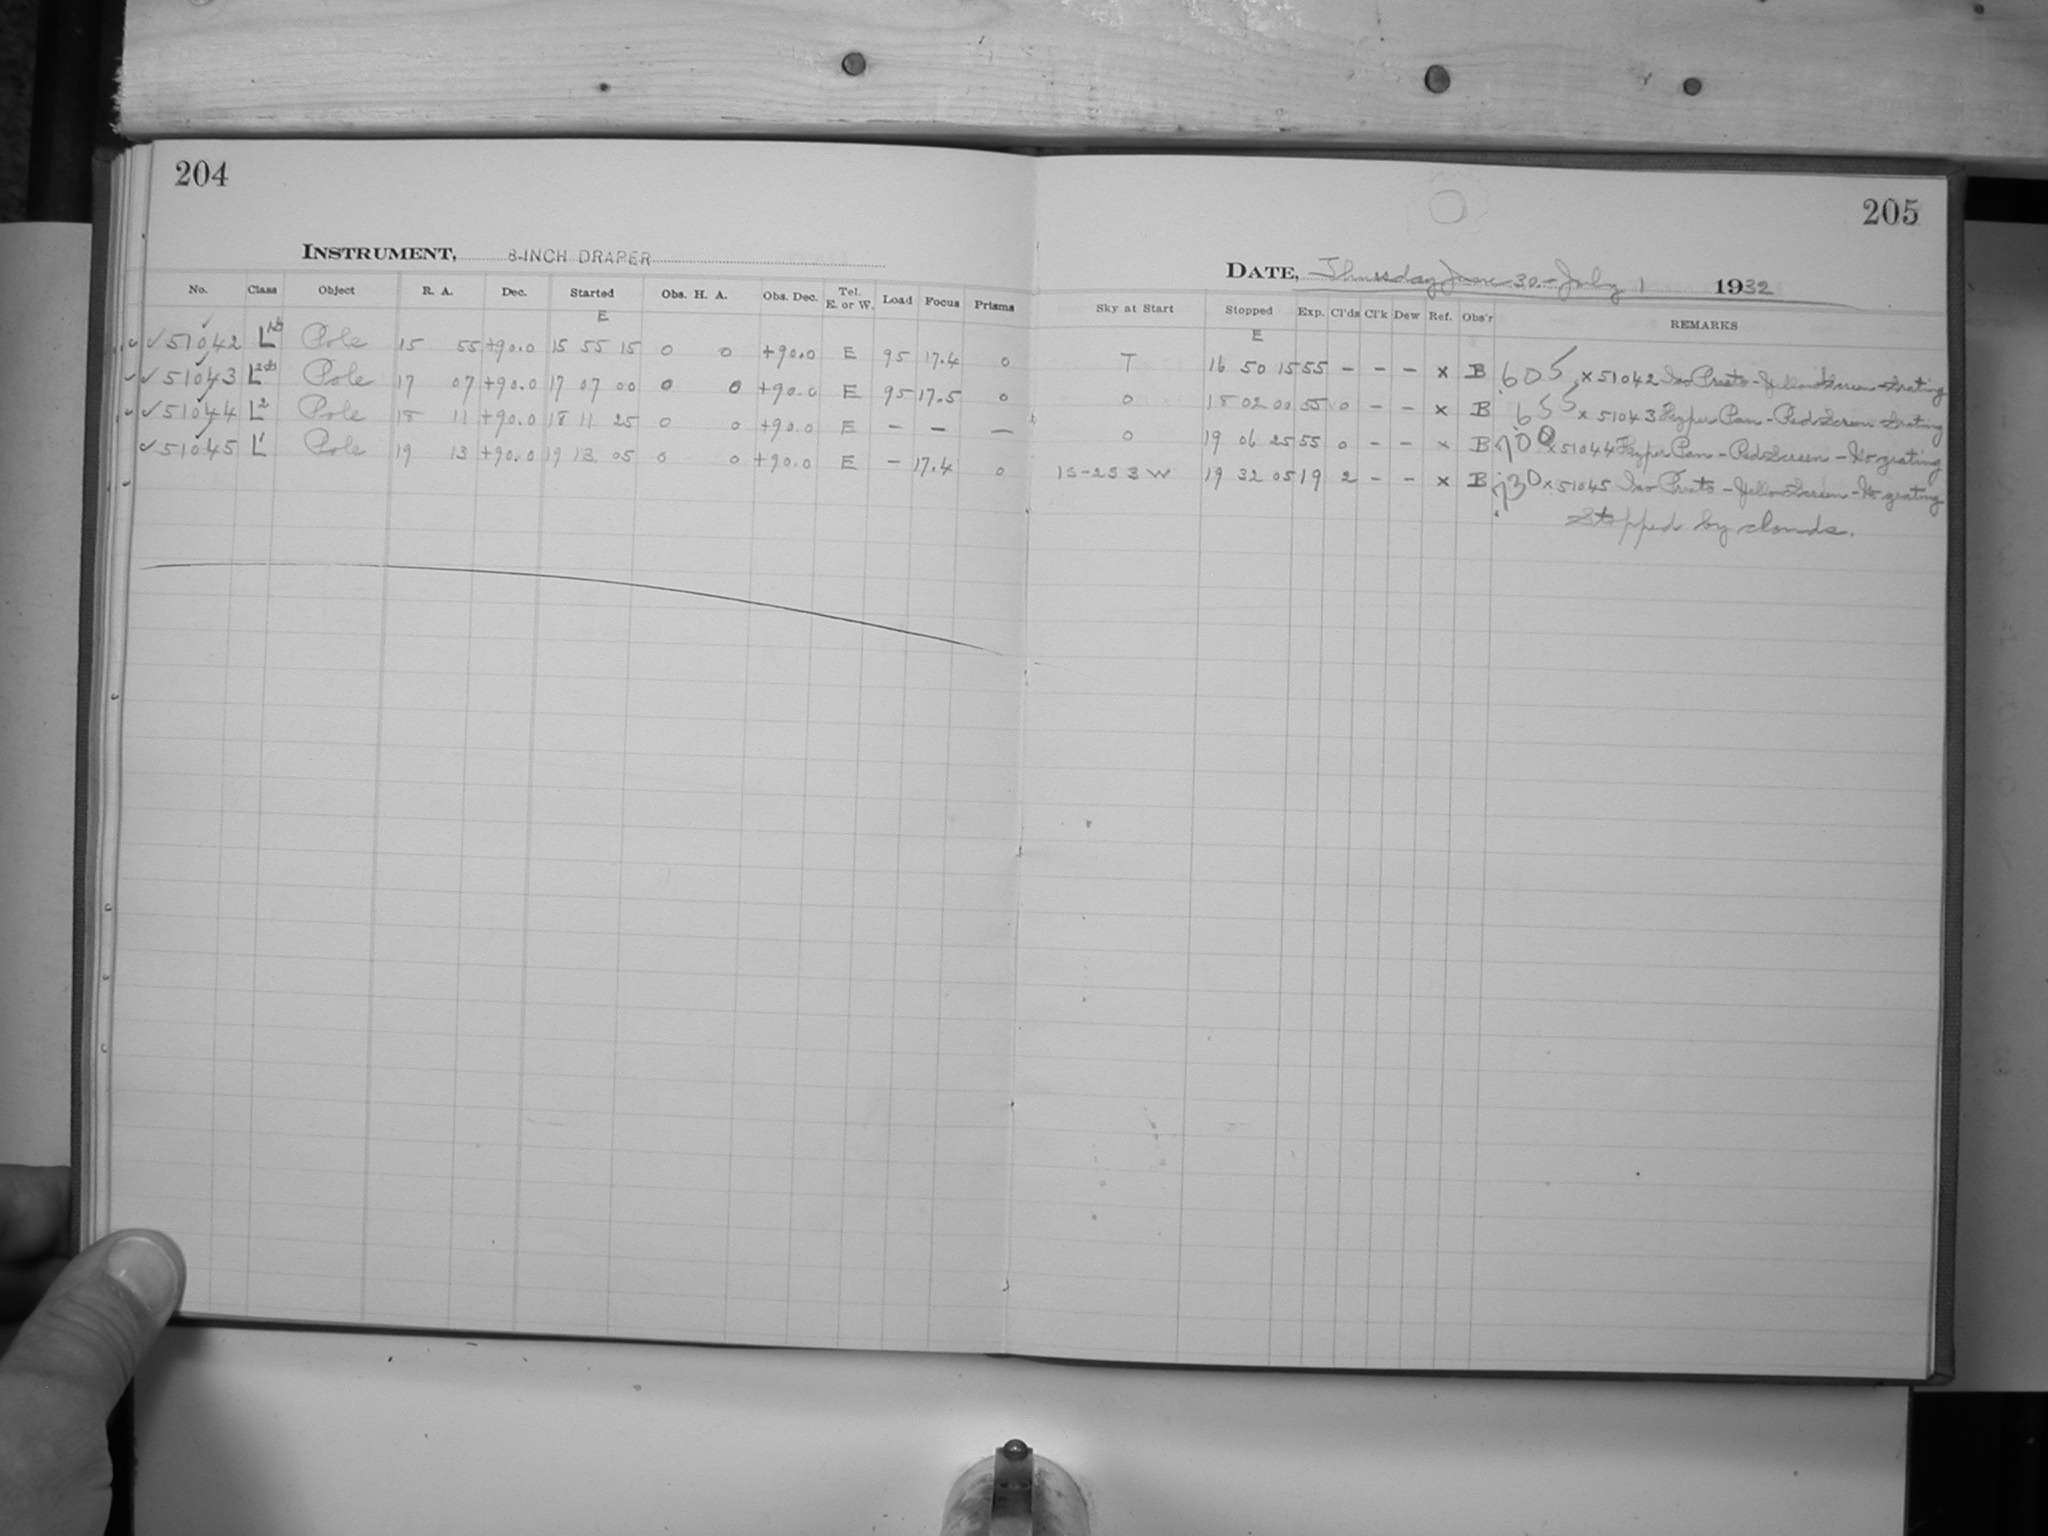 204
INSTRUMENT, 8-INCH DRAPER
No. Class Object R. A. Dec. Started Obs. H. A. Obs. Dec. Tel. E. or W. Load Focus Prisms
E
✓ 51042 L Pole 15 55 +90.0 15 55 15 0 0 +90.0 E 95 17.4 0
✓ 51043 L Pole 17 07 +90.0 17 07 00 0 0 +90.0 E 95 17.5 0
✓ 51044 L2 Pole 18 11 +90.0 18 11 25 0 0 +90.0 E – – –
✓ 51045 L1 Pole 19 13 +90.0 19 13 05 0 0 +90.0 E – 17.4 0
205
DATE, Thursday June 30 - July 1 1932
Sky at Start Stopped Exp. Cl'ds Cl'k Dew Ref. Obs'r REMARKS
E
T 16 50 15 55 – – – x B 605 x 51042 Iso Presto - Yellow Screen - Grating
0 18 02 00 55 0 – – x B 655 x 51043 Hyper Pan - Red Screen Grating
0 19 06 25 55 0 – – x B 700 x 51044 Hyper Pan - Red Screen - No grating
1S-2S 3 W 19 32 05 19 2 – – x B 730 x 51045 Iso Presto - Yellow Screen - No grating
Stopped by clouds.